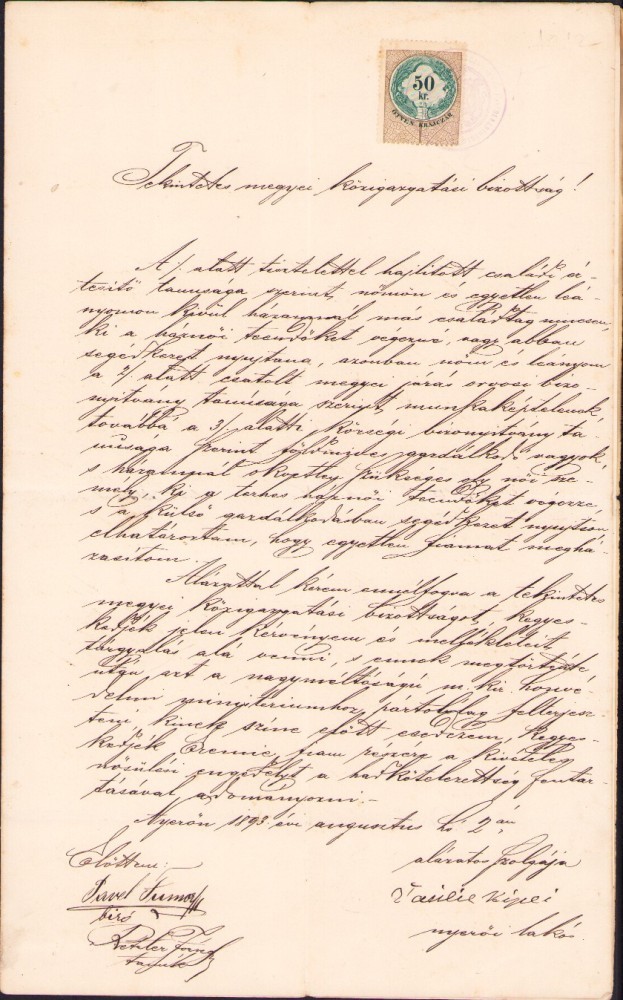 50
kr.
ÖTVEN KRAJCZÁR
Tekintetes megyei közigazgatási bizottság!
A 1/. alatt tisztelettel hajlitott családi ér-
tesitő tanusága szerint, nőmön és egyetlen leá-
nyomon kivül házamnál más családtag nincsen,
ki a házinői teendőket végezné, vagy abban
segédkezet nyujtana, azonban nőm és leányom
a 2/. alatt csatolt megyei járás orvosi bizo-
nyitvány tanúsága szerint munkaképtelenek,
továbbá a 3/. alatti községi bizonyitvány ta-
nusága szerint földmives gazdálkodó vagyok,
s házamnál okvetlen szükséges egy női sze-
mély, ki a terhes házinői teendőket végezze,
s a külső gazdálkodásban segédkezet nyujtson
elhatároztam, hogy egyetlen fiamat meghá-
zasitom.
Alázattal kérem ennélfogva a tekintetes
megyei közigazgatási bizottságot, kegyes-
kedjék jelen kérvényem és mellékleteit
tárgyalás alá venni, s ennek megtörténte
után azt a nagyméltóságú m. kir. honvé-
delmi ministeriumhoz pártolólag felterjesz-
teni, kinek szine előtt esedezem, kegyes-
kedjék fiam részére a kivételes
nősülési engedélyt a hadkötelezettség fentar-
tásával adományozni.-
Nyerőn 1893. évi augusztus hó 2 án
Előttem:
alázatos szolgája
Pavel
Vasilie
biró
nyerői lakós.